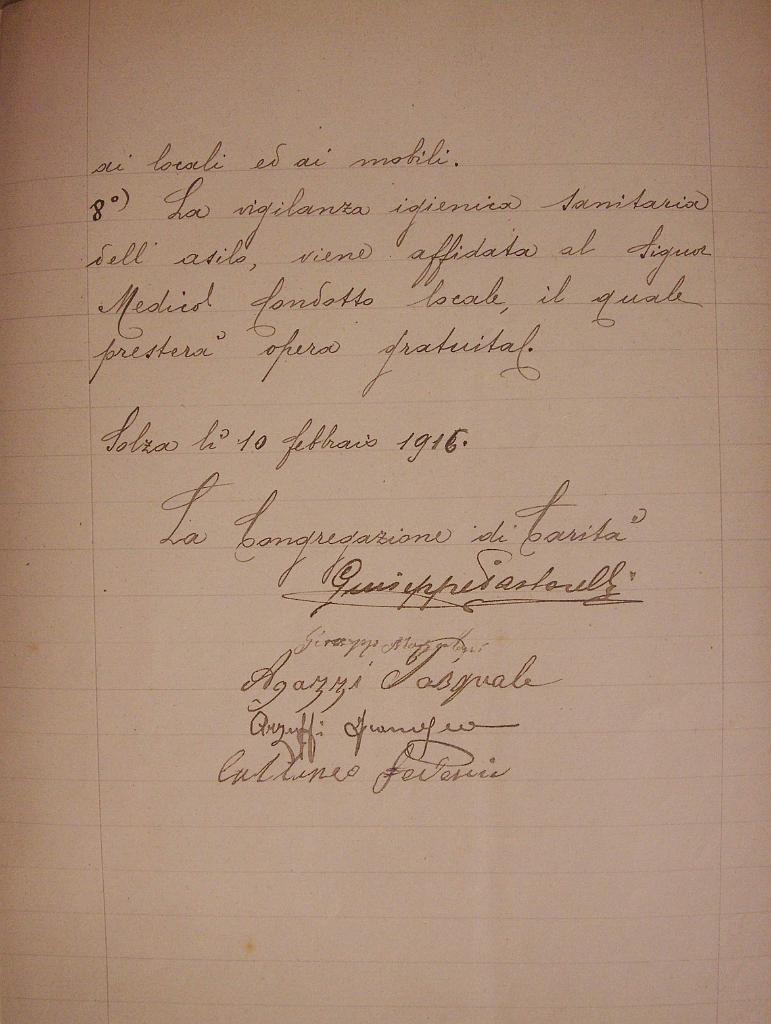 ai locali ed ai mobili.
8°) La vigilanza igienica sanitaria
dell' asilo, viene affidata al Signor
Medico Condotto locale, il quale
presterà opera gratuita.
Solza lì 10 febbraio 1916.
La Congregazione di Carità
Giuseppe Pastorelli
Giuseppe
Agazzi Pasquale
Arzuffi
Cattaneo